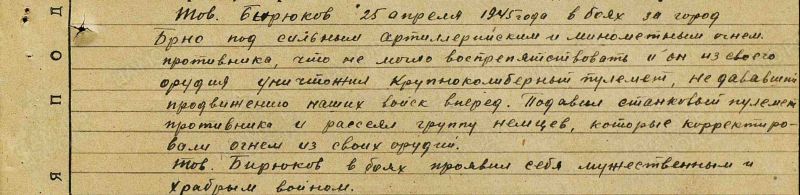 Тов. Бирюков 25 апреля 1945 года в боях за город
Брно под сильным артиллерийским и минометным огнем
противника, что не могло воспрепятствовать и он из своего
орудия уничтожил крупнокалиберный пулемет, не дававший
продвижению наших войск вперед. Подавил станковый пулемет
противника и рассеял группу немцев, которые корректиро-
вали огнем из своих орудий.
Тов. Бирюков в боях проявил себя мужественным и
храбрым воином.
Я П О Д